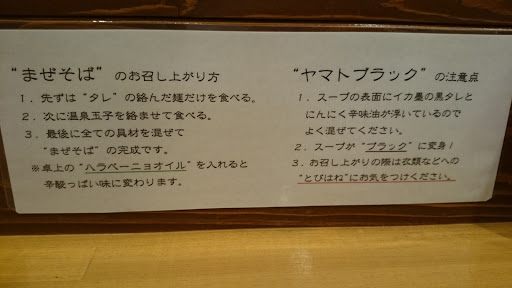 “まぜそば” のお召し上がり方
1．先ずは“タレ”の絡んだ麺だけを食べる。
2．次に温泉玉子を絡ませて食べる。
3．最後に全ての具材を混ぜて
“まぜそば”の完成です。
※卓上の“ハラペーニョオイル”を入れると
辛酸っぱい味に変わります。
“ヤマトブラック” の注意点
1．スープの表面にイカ墨の黒タレと
にんにく辛味油が浮いているので
よく混ぜてください。
2．スープが“ブラック”に変身！
3．お召し上がりの際は衣類などへの
“とびはね”にお気をつけください。